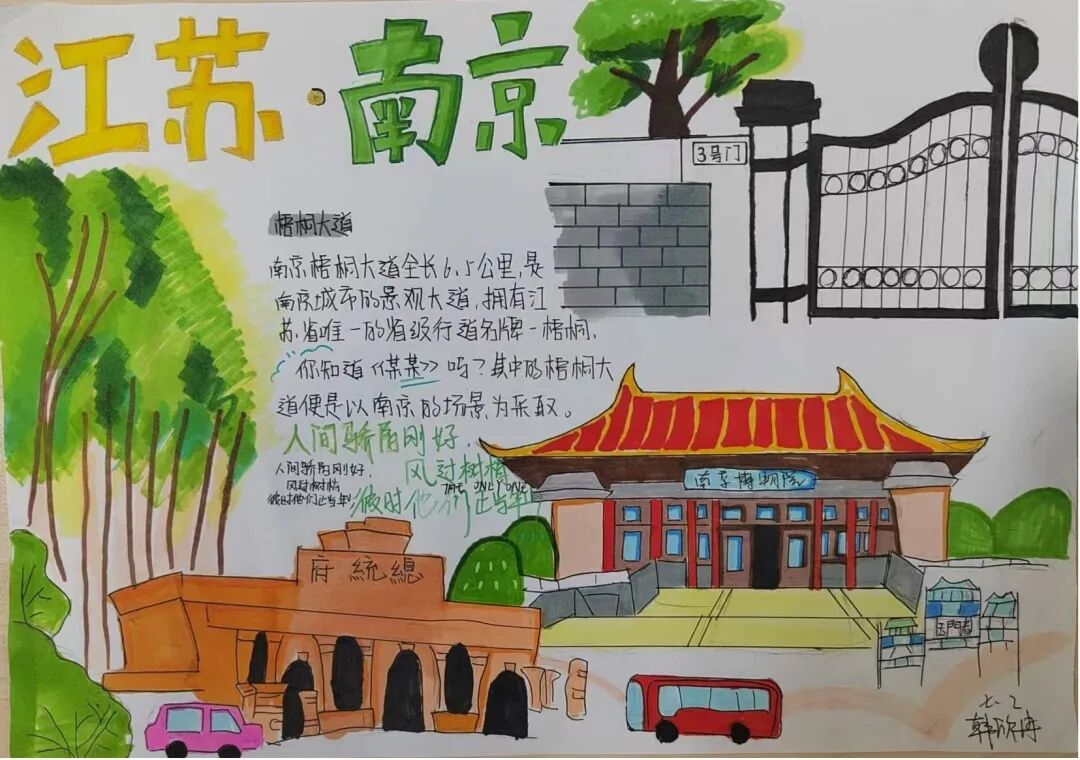 江苏·南京
3号门
梧桐大道
南京梧桐大道全长6.5公里,是
南京城市的景观大道,拥有江
苏省唯一的省级行道名牌-梧桐.
你知道《某某》吗?其中的梧桐大
道便是以南京的场景为采取。
人间骄阳刚好,
风过树梢
彼时他们正当年
人间骄阳刚好,
风过树梢
彼时他们正当年
THE ONLY ONE
南京博物院
府統總
七.2